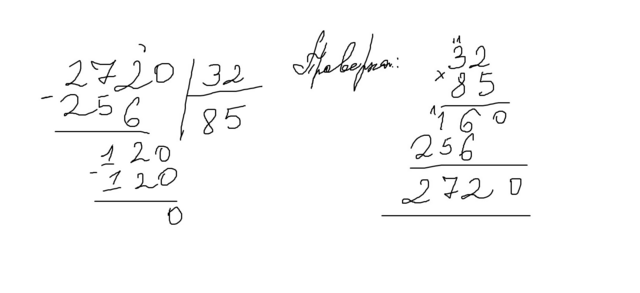 2720 | 32
- 256 | 85
120
- 120
0
Проверка:
11
32
× 85
1160
256
2720